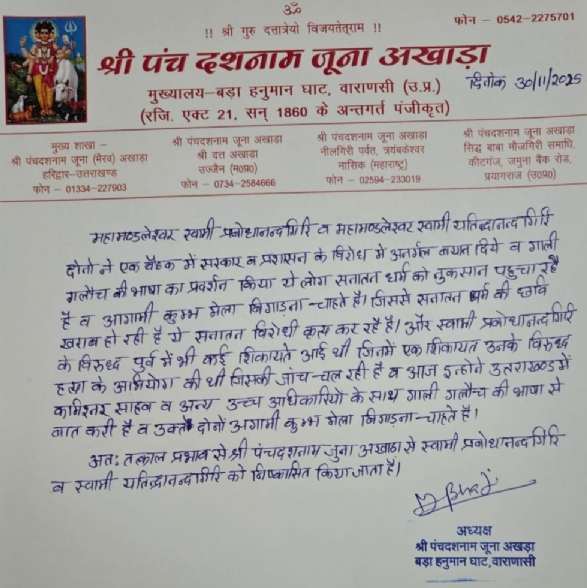 ॐ
!! श्री गुरु दत्तात्रेयो विजयतेतराम् !!
फोन - 0542-2275701
श्री पंच दशनाम जूना अखाड़ा
मुख्यालय-बड़ा हनुमान घाट, वाराणसी (उ.प्र.)
दिनांक 30/11/2025
(रजि. एक्ट 21, सन् 1860 के अन्तर्गत पंजीकृत)
मुख्य शाखा –
श्री पंचदशनाम जूना (भैरव) अखाड़ा
हरिद्वार-उत्तराखण्ड
फोन – 01334-227903
श्री पंचदशनाम जूना अखाड़ा
श्री दत्त अखाड़ा
उज्जैन (म०प्र०)
फोन – 0734-2584666
श्री पंचदशनाम जूना अखाड़ा
नीलगिरी पर्वत, त्रयंबकेश्वर
नासिक (महाराष्ट्र)
फोन – 02594-233019
श्री पंचदशनाम जूना अखाड़ा
सिद्ध बाबा मौजगिरी समाधि,
कीटगंज, जमुना बैंक रोड,
प्रयागराज (उ०प्र०)
महामण्डलेश्वर स्वामी प्रबोधानन्द गिरि व महामण्डलेश्वर स्वामी यतिन्द्रानन्द गिरि
दोनो ने एक बैठक में सरकार व प्रशासन के विरोध मे अनर्गल बयान दिये व गाली
गलौच की भाषा का प्रदर्शन किया ये लोग सनातन धर्म को नुकसान पहुचा रहे
है व आगामी कुम्भ मेला बिगाड़ना चाहते है। जिससे सनातन धर्म की छवि
खराब हो रही है ये सनातन विरोधी कृत्य कर रहे है। और स्वामी प्रबोधानन्द गिरि
के विरुद्ध पूर्व में भी कई शिकायते आई थी जिनमें एक शिकायत उनके विरुद्ध
हत्या के अभियोग की थी जिसकी जांच चल रही है व आज इन्होने उत्तराखण्ड में
कमिश्नर साहब व अन्य उच्च अधिकारियो के साथ गाली गलौच की भाषा से
बात करी है व उक्त दोनों आगामी कुम्भ मेला बिगाड़ना चाहते है।
अतः तत्काल प्रभाव से श्री पंचदशनाम जुना अखाड़ा से स्वामी प्रबोधानन्द गिरि
व स्वामी यतिन्द्रानन्द गिरि को निष्कासित किया जाता है।
अध्यक्ष
श्री पंचदशनाम जूना अखड़ा
बड़ा हनुमान घाट, वाराणासी